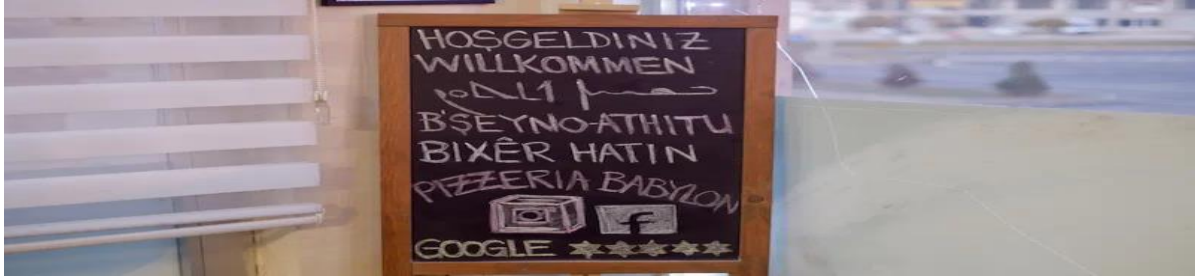 HOŞGELDINIZ
WILLKOMMEN
B'ŞEYNO-ATHITU
BIXÊR HATIN
PIZZERIA BABYLON
f
GOOGLE